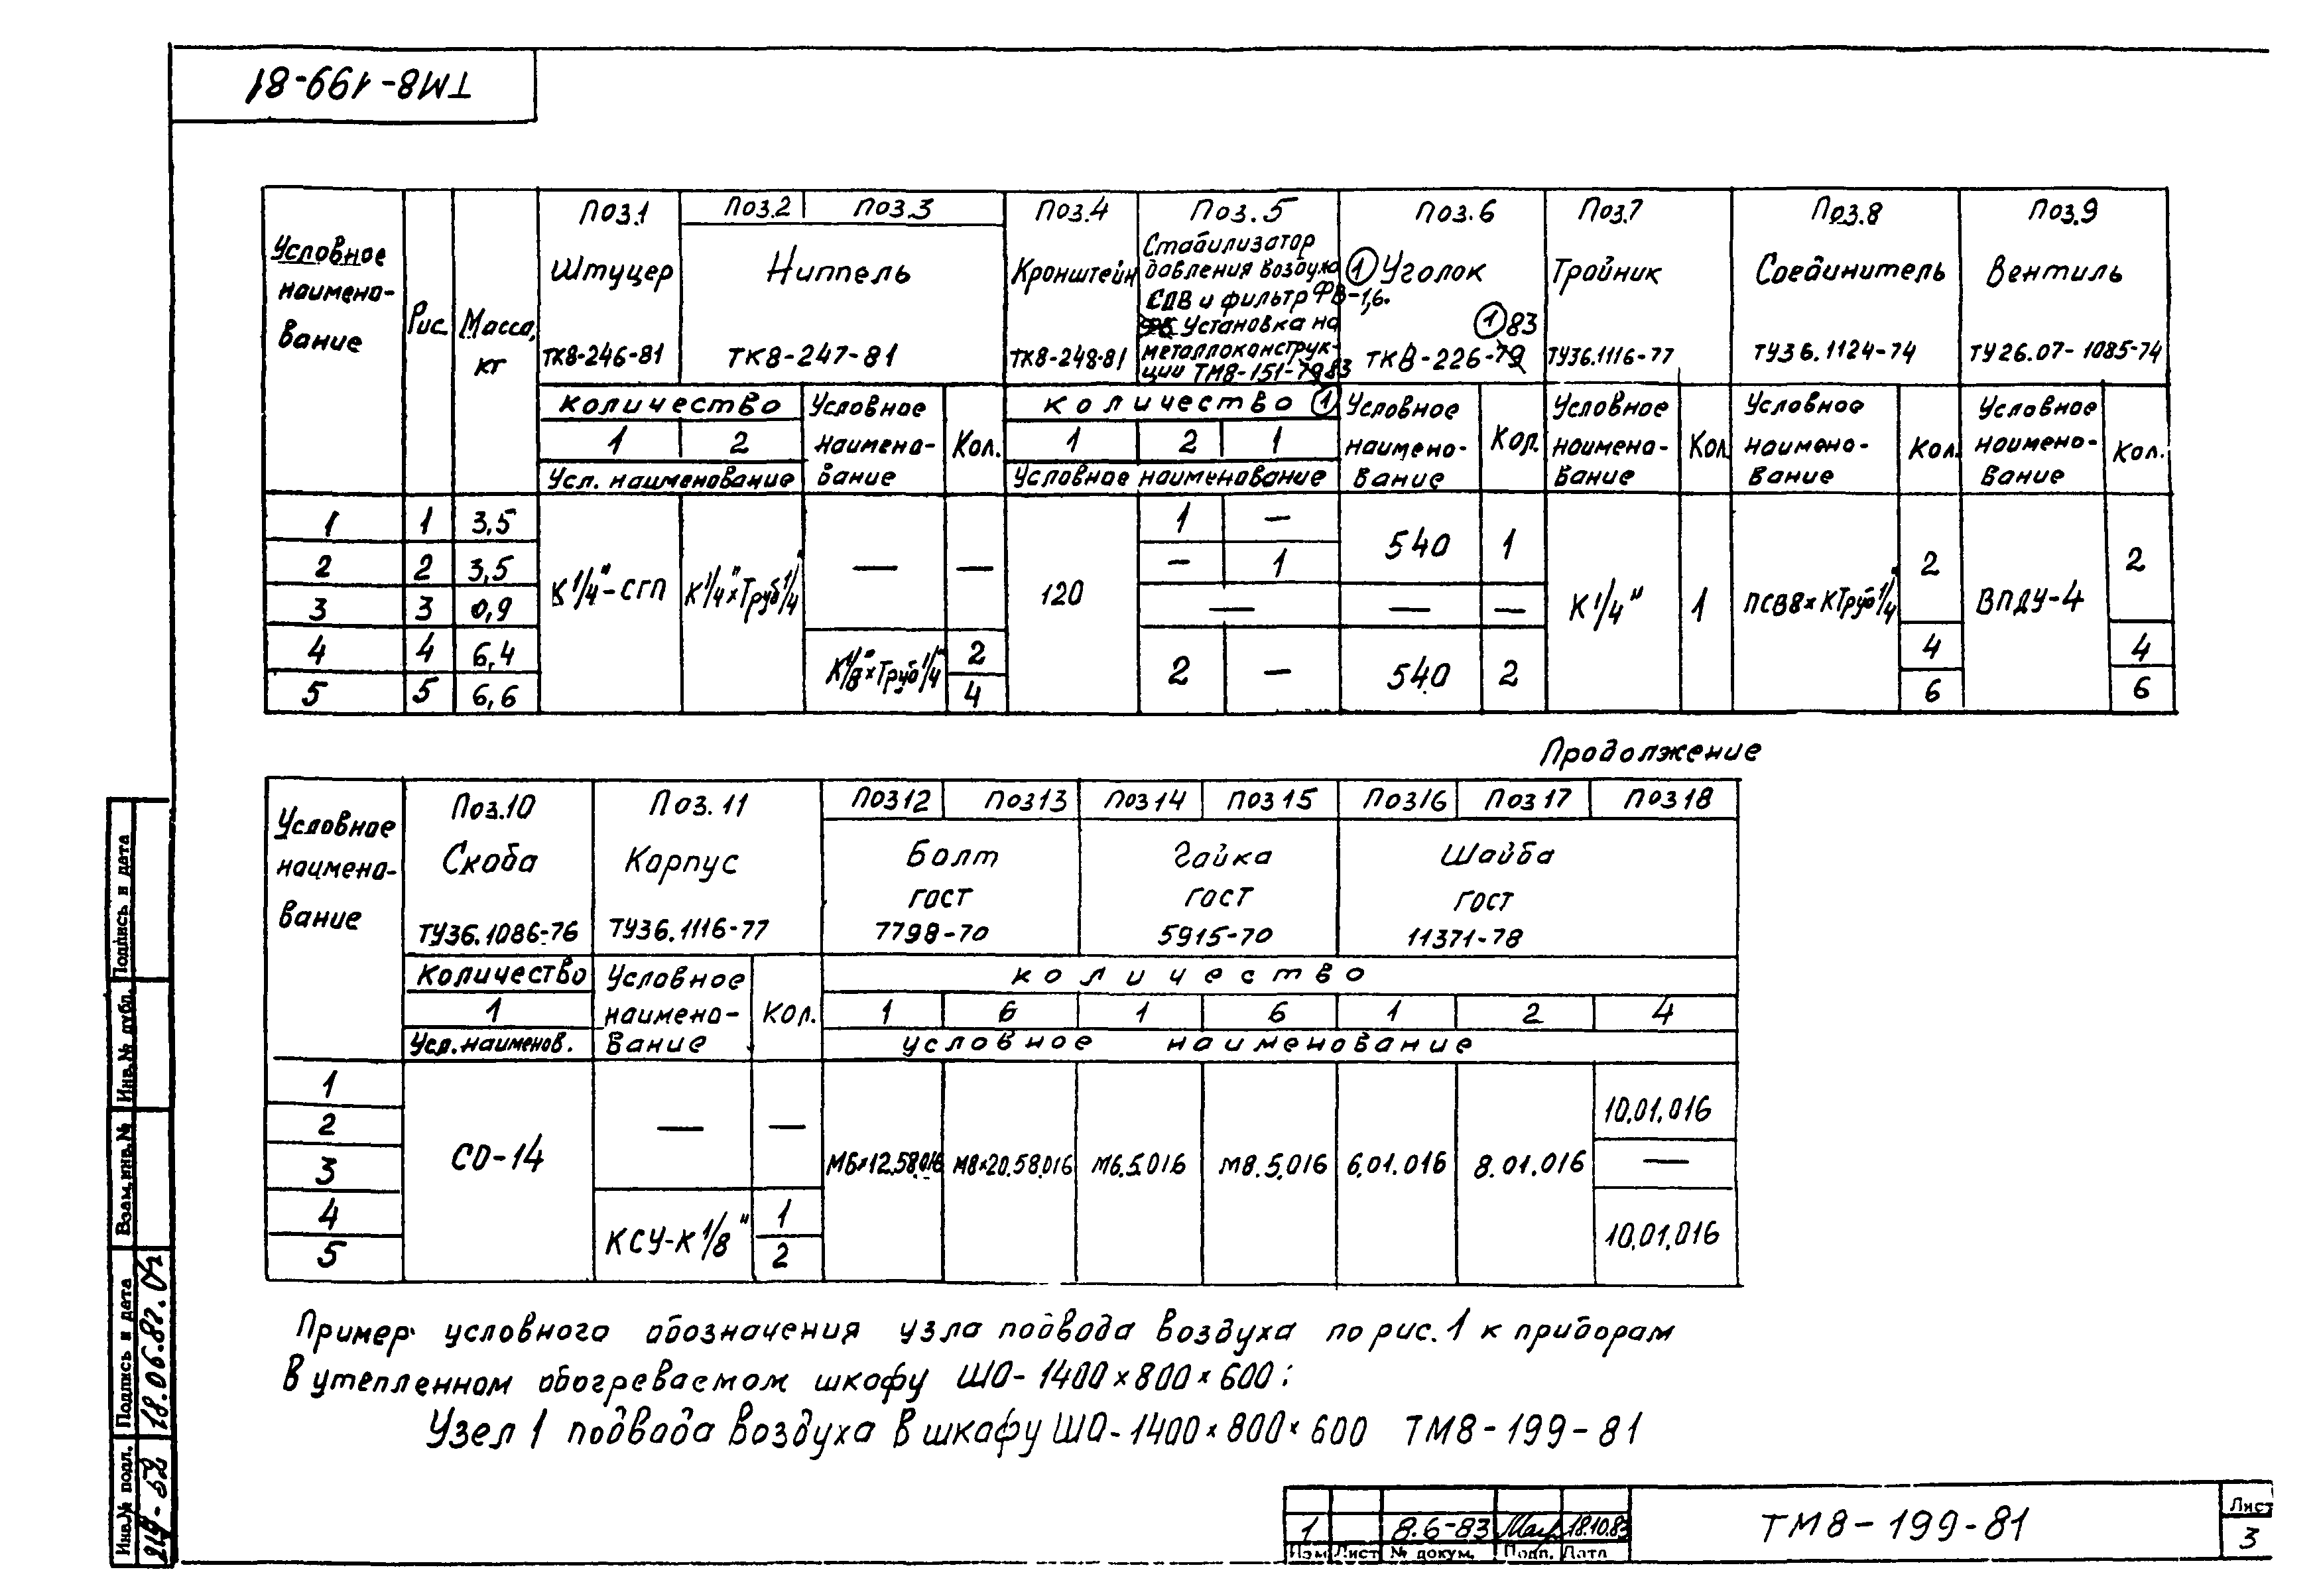 ТМ8-199-81
Условное наимено- вание
Рис.
Масса, кг
Поз.1
Штуцер
ТК8-246-81
Поз.2 Поз.3
Ниппель
ТК8-247-81
Поз.4
Кронштейн
ТК8-248-81
Поз.5
Стабилизатор
давления воздуха
СДВ и фильтр ФВ-1,6.
Установка на
металлоконструк-
ции ТМ8-151-79 83
Поз.6
1 Уголок
1 83
ТК8-226-79
Поз.7
Тройник
ТУ36.1116-77
Поз.8
Соединитель
ТУ36.1124-74
Поз.9
Вентиль
ТУ26.07-1085-74
Количество
1 2
Усл. наименование
Условное наимено- вание
Кол.
Количество 1
1 2 1
Условное наименование
Условное наимено- вание
Кол.
Условное наимено- вание
Кол.
Условное наимено- вание
Кол.
Условное наимено- вание
Кол.
1 1 3,5
2 2 3,5
3 3 0,9
4 4 6,4
5 5 6,6
К 1/4"-СГП
К 1/4"×Труб 1/4"
— —
К 1/8"×Труб 1/4"
2
4
120
1 —
— 1
—
2 —
540 1
— —
540 2
К 1/4" 1
ПСВ8×КТруб 1/4"
2
4
6
ВПДУ-4
2
4
6
Продолжение
Условное наимено- вание
Поз.10
Скоба
ТУ36.1086-76
Поз.11
Корпус
ТУ36.1116-77
Поз 12 Поз 13
Болт
ГОСТ
7798-70
Поз 14 Поз 15
Гайка
ГОСТ
5915-70
Поз 16 Поз 17 Поз 18
Шайба
ГОСТ
11371-78
Количество
1
Усл.наименов.
Условное наимено- вание
Кол.
количество
1 6 1 6 1 2 4
условное наименование
1
2
3
4
5
СО-14
— —
КСУ-К 1/8"
1
2
М6×12.58.016
М8×20.58.016
М6.5.016
М8.5.016
6.01.016
8.01.016
10.01.016
—
10.01.016
Пример условного обозначения узла подвода воздуха по рис.1 к приборам
в утепленном обогреваемом шкафу ШО-1400×800×600:
Узел 1 подвода воздуха в шкафу ШО-1400×800×600 ТМ8-199-81
Подпись и дата
Инв.№ дубл.
Взам.инв.№
Подпись и дата
Инв.№ подл.
1 8.6-83 18.10.83
Изм Лист № докум. Подп. Дата
ТМ8-199-81
Лист
3